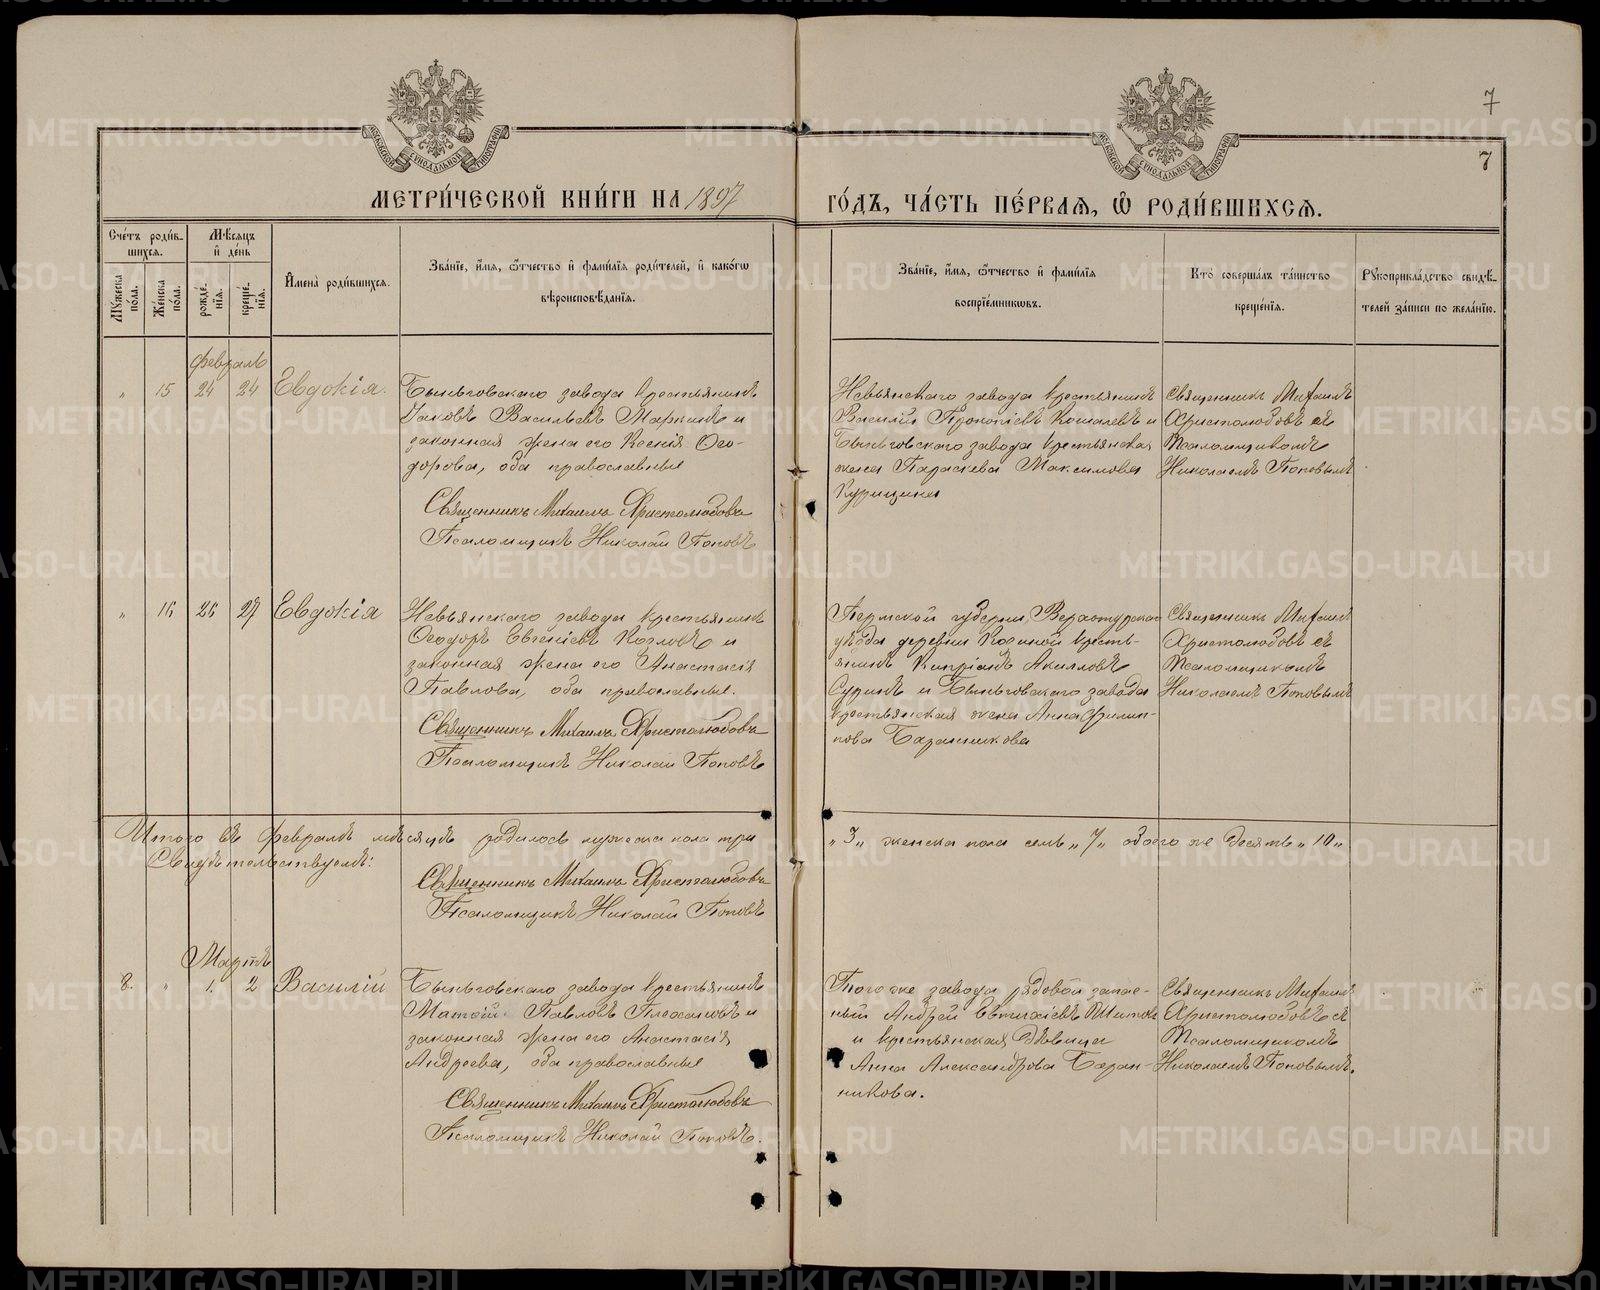 7
7
МОСКОВСКОЙ СѴНОДАЛЬНОЙ ТИПОГРАФІИ
МОСКОВСКОЙ СѴНОДАЛЬНОЙ ТИПОГРАФІИ
МЕТРИ́ЧЕСКОЙ КНИ́ГИ НА 1897
ГО́ДЪ, ЧА́СТЬ ПЕ́РВАѦ, Ѡ҆ РОДИ́ВШИХСѦ.
Сче́тъ роди́в-
шихся.
Мѣ́сяцъ
и҆ де́нь
Мꙋ́жеска
по́ла.
Же́нска
по́ла.
рожде́-
нїѧ.
креще́-
нїѧ.
И҆мена̀ роди́вшихся.
Зва́нїе, и҆́мѧ, ѻ҆́тчество и҆ фами́лїѧ роди́телей, и҆ како́гѡ
вѣроисповѣ́данїѧ.
Зва́нїе, и҆́мѧ, ѻ҆́тчество и҆ фами́лїѧ
воспрїе́мниковъ.
Кто̀ соверша́лъ та́инство
креще́нїѧ.
Рꙋкоприкла́дство свидѣ́-
телей за́писи по жела́нїю.
Февраль
„ 15 24 24 Евдокія.
Быньговскаго завода крестьянинъ
Іаковъ Васильевъ Маркинъ и
законная жена его Ксенія Ѳео-
дорова, оба православные
Священникъ Михаилъ Христолюбовъ
Псаломщикъ Николай Поповъ
Невьянскаго завода крестьянинъ
Василій Прокопіевъ Кошалевъ и
Быньговскаго завода крестьянская
жена Параскева Максимова
Курицина
Священникъ Михаилъ
Христолюбовъ съ
Псаломщикомъ
Николаемъ Поповымъ
„ 16 26 27 Евдокія
Невьянскаго завода крестьянинъ
Ѳеодоръ Евгеніевъ Козловъ и
законная жена его Анастасія
Павлова, оба православные.
Священникъ Михаилъ Христолюбовъ
Псаломщикъ Николай Поповъ
Пермской губерніи, Верхотурскаго
уѣзда деревни Косиной кресть-
янинъ Кипріанъ Акилловъ
Суринъ и Быньговскаго завода
крестьянская жена Анна Филип-
пова Баранникова
Священникъ Михаилъ
Христолюбовъ съ
Псаломщикомъ
Николаемъ Поповымъ
Итого въ Февралѣ мѣсяцѣ родилось мужеска пола три
„3„ женска пола семь „7„ обоего же десять „10„
Свидѣтельствуемъ:
Священникъ Михаилъ Христолюбовъ
Псаломщикъ Николай Поповъ
Мартъ
8. „ 1. 2 Василій
Быньговскаго завода крестьянинъ
Матѳій Павловъ Плехановъ и
законная жена его Анастасія
Андреева, оба православные
Священникъ Михаилъ Христолюбовъ
Псаломщикъ Николай Поповъ.
Того же завода рядовой запас-
ный Андрей Евтихіевъ Шитовъ
и крестьянская дѣвица
Анна Александрова Баран-
никова.
Священникъ Михаилъ
Христолюбовъ съ
Псаломщикомъ
Николаемъ Поповымъ.
METRIKI.GASO-URAL.RU